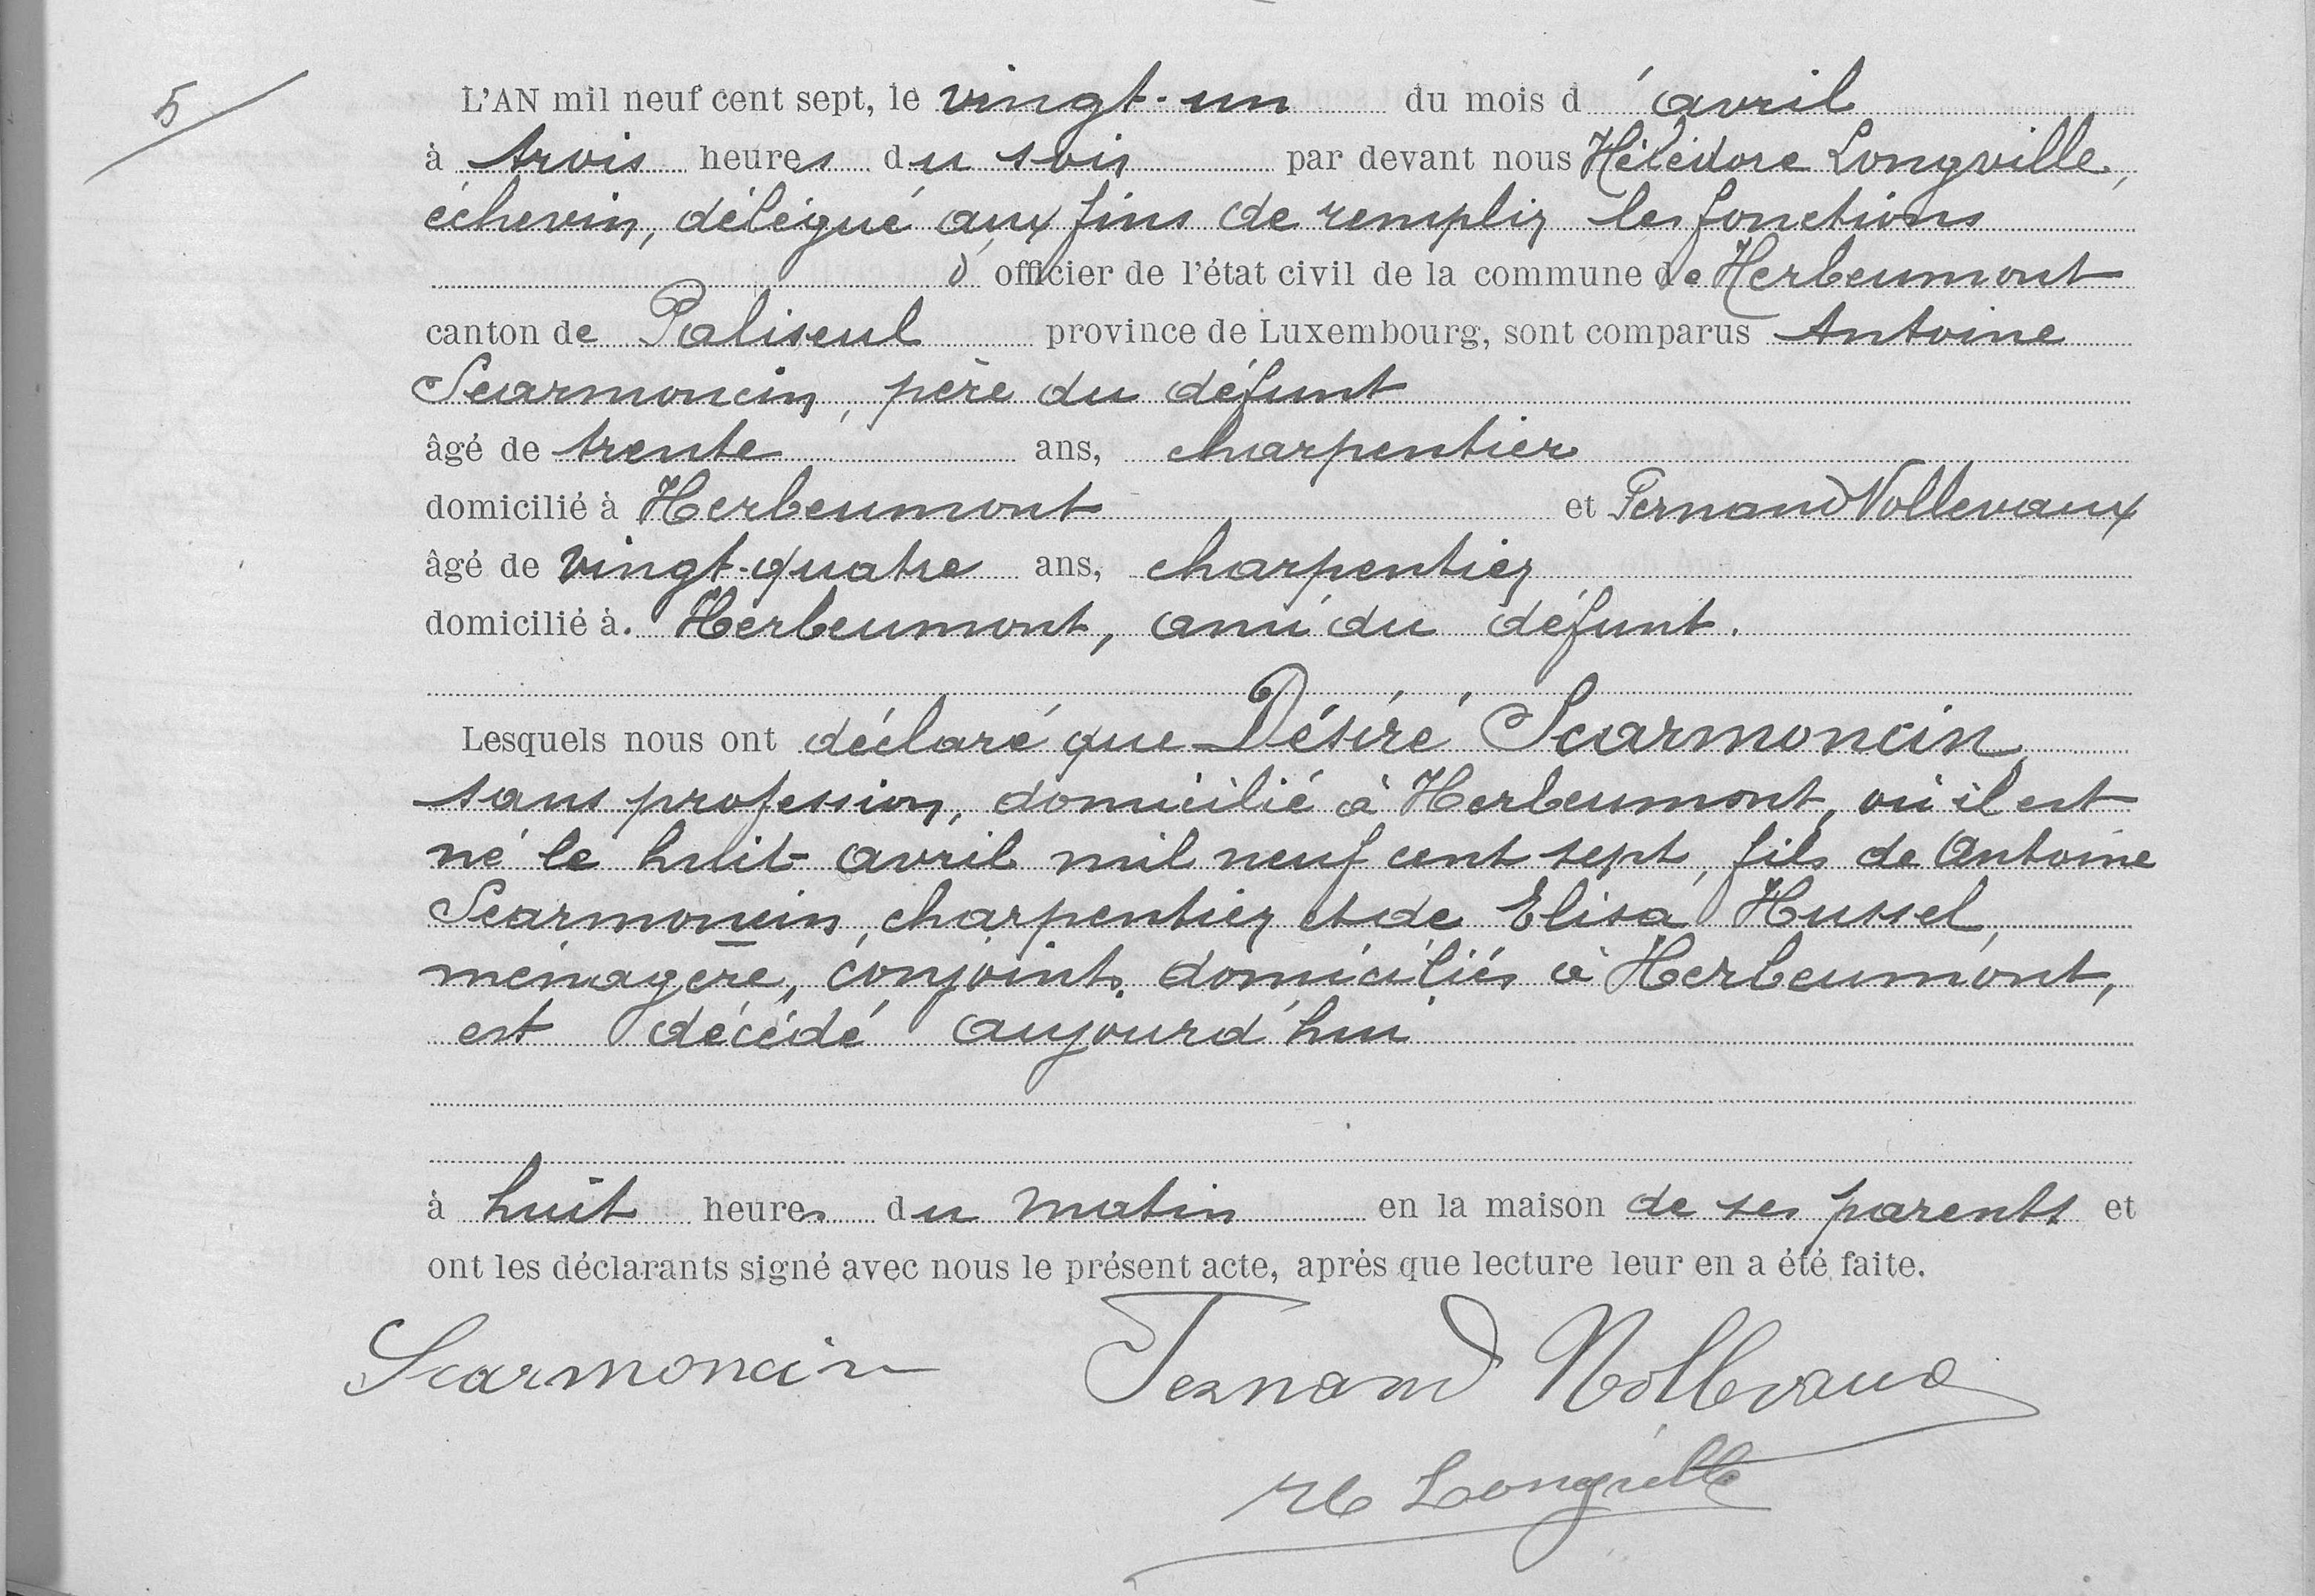 5
L'AN mil neuf cent sept, le vingt-un du mois d'avril
à trois heures du soir par devant nous Hélidore Longville,
échevin, délégué aux fins de remplir les fonctions
d'officier de l'état civil de la commune de Herbeumont
canton de Paliseul province de Luxembourg, sont comparus Antoine
Scarmoncin, père du défunt
âgé de trente ans, charpentier
domicilié à Herbeumont et Fernand Nollevaux
âgé de vingt-quatre ans, charpentier
domicilié à. Herbeumont, ami du défunt.
Lesquels nous ont déclaré que Désiré Scarmoncin,
sans profession, domicilié à Herbeumont, où il est
né le huit avril mil neuf cent sept, fils de Antoine
Scarmoncin, charpentier et de Elisa Hussel,
ménagère, conjoints, domiciliés à Herbeumont,
est décédé aujourd'hui
à huit heures du matin en la maison de ses parents et
ont les déclarants signé avec nous le présent acte, après que lecture leur en a été faite.
Scarmoncin Fernand Nollevaux
H Longville